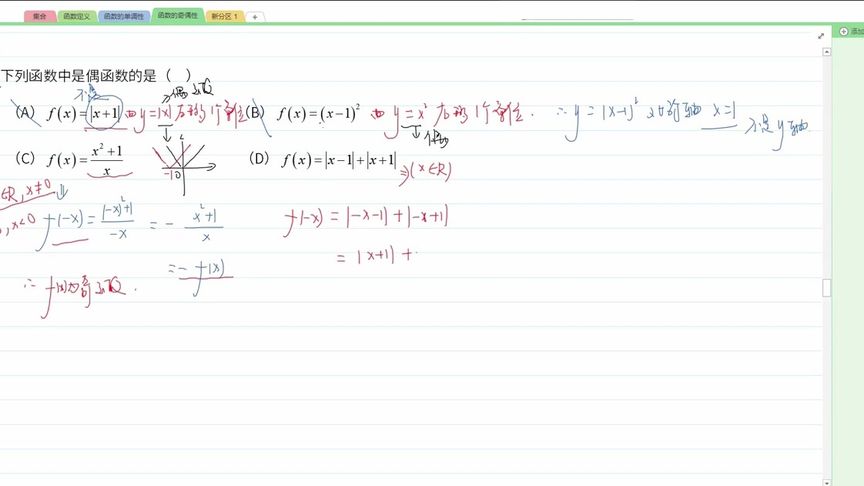 集合 函数定义 函数的单调性 函数的奇偶性 新分区 1 +
添加
下列函数中是偶函数的是（ ）
不是
(A) f(x)=|x+1| 由 y=|x| 左移1个单位 (B) f(x)=(x-1)² 由 y=x² 右移1个单位. ∴ y=(x-1)² 对称轴 x=1
不是y轴
偶函数
(C) f(x)=\frac{x²+1}{x} (D) f(x)=|x-1|+|x+1| ⇒ (x∈R)
-1 0
∈R, x≠0
x<0 f(-x)=\frac{(-x)²+1}{-x} = -\frac{x²+1}{x} f(-x)=|-x-1|+|-x+1|
=-f(x) =|x+1|+
∴ f(x)为奇函数.